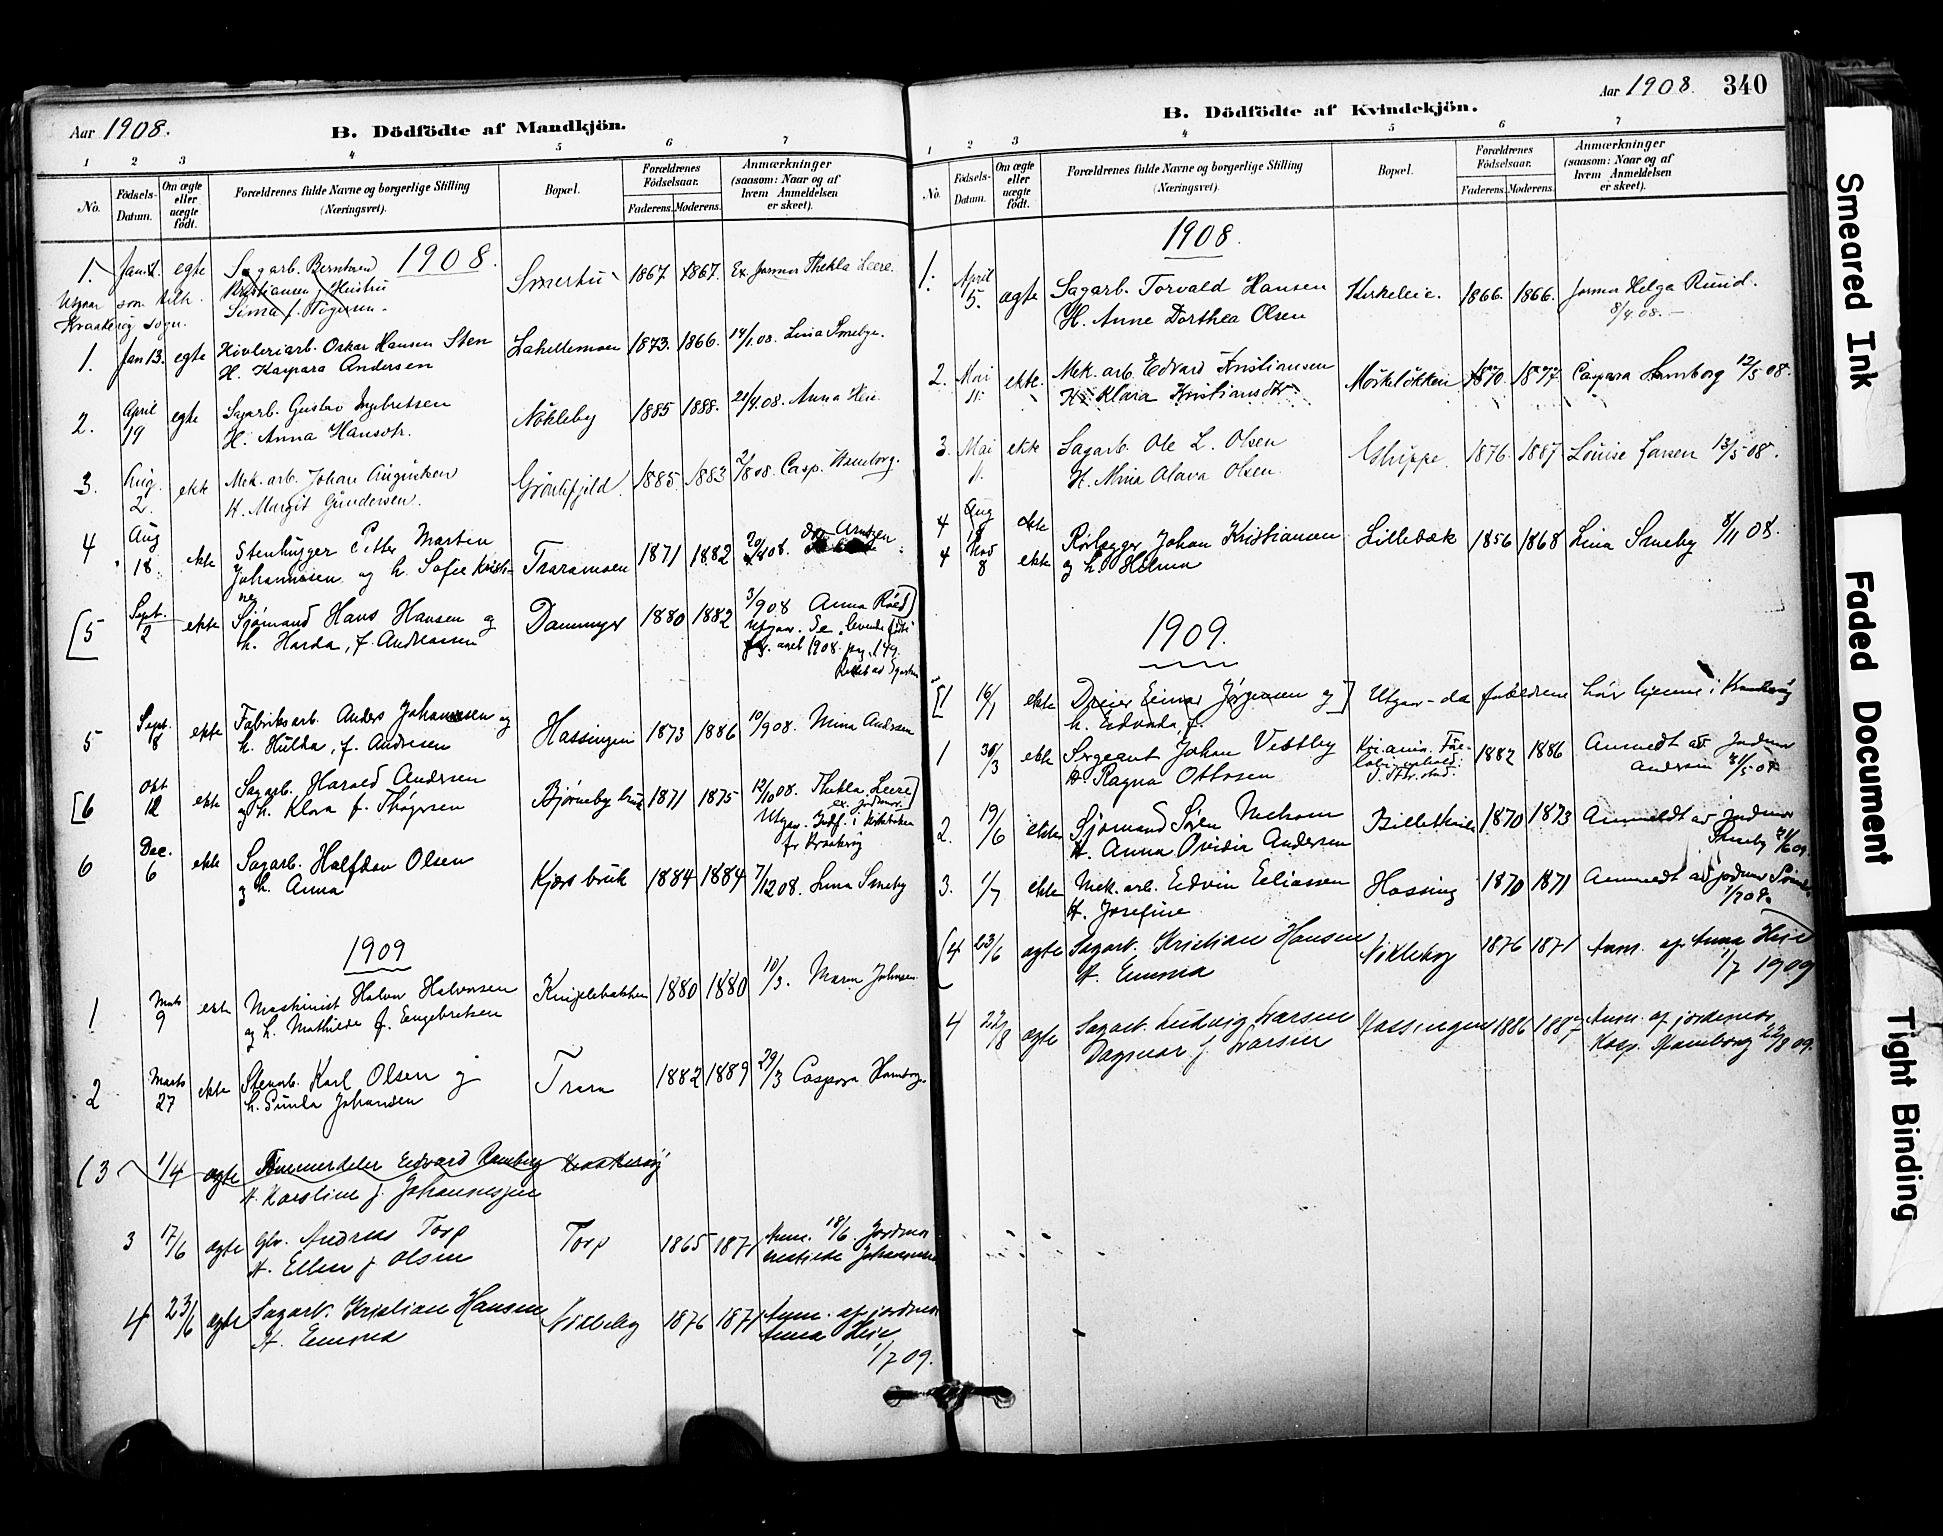 Aar 1908.
B. Dödfödte af Mandkjön.
1 2 3 4 5 6 7
No.
Födsels-Datum.
Om ægte eller uægte födt.
Forældrenes fulde Navne og borgerlige Stilling (Næringsvei).
Bopæl.
Forældrenes Födselsaar.
Faderens. Moderens.
Anmærkninger (saasom: Naar og af hvem Anmeldelsen er skeet).
1908.
1. Jan. egte Sagarb. Berntsen 1867. 1867. Ex. jormor Thekla Leere.
Kristiansen, Hustru
Utgaar som tilh.
Kraakerøy sogn.
1. Jan 13. egte Høvleriarb. Oskar Hansen Sten Lahellemoen 1873. 1866. 14/1.08. Lina Smebye.
H. Kaspara Andersen
2. April 19 egte Sagarb. Gustav Ingbretsen Nökleby 1885 1888. 21/4.08. Anna Heie
H. Anna Hansdtr.
3. Aug. 2. ekte Mek. arb. Johan 1885. 1883 2/8 08. Casp. Hamborg.
H. Margit Gundersen.
4 Aug 18. ekte Stenhugger Petter Martin Traramoen 1871 1882 20/8 08.
Johannesen og h. Sofie Kristi-
ne
[5 Sept. 2 ekte Sjømand Hans Hansen og Dammyr 1880 1882 3/9 08 Anna Röed]
h. Harda, f. Andreassen Utgaar. Se "levende födte"
aaret 1908. pag. 149.
5 Sept. 8 ekte Fabrikarb. Anders Johansen og Hassingen 1873 1886 10/9 08. Mina Andersen
h. Hulda, f. Andresen
[6 Okt 12 ekte Sagarb. Harald Andersen Bjørneby bruk 1871 1875 12/10 08. Thekla Leere]
og h. Klara f. Thøgersen ex. jordmor.
Utgaar. Indf. i kirkeboken
for Kraakerøy
6 Dec. 6 ekte Sagarb. Halfdan Olsen Kjærs bruk 1884 1884 7/12 08. Lina Smeby
og h. Anna
1909
1 Marts 9 ekte Maskinist Halvor Halvorsen 1880 1880 10/3. Maren Johnsen
og h. Mathilde f. Engebretsen
2 Marts 27 ekte Stenarb. Karl Olsen og Trara 1882 1889 29/3 Caspara Hamborg.
h. Gunda Johansen
(3 1/4 ægte Tømmerdeler Edvard Ramberg Kraakerøy
H. Karoline f. Johannessen
3 17/6 ægte Gbr. Andreas Torp Torp 1865 1871 Anm. 18/6. Jordmor
H. Ellen f. Olsen Johannesen
4 23/6 ægte Sagarb. Kristian Hansen Nökleby 1876 1871 Anm. af jordmor
H. Emma Anna Heie
1/7 09.
Aar 1908. 340
B. Dödfödte af Kvindekjön.
1 2 3 4 5 6 7
No.
Födsels-Datum.
Om ægte eller uægte födt.
Forældrenes fulde Navne og borgerlige Stilling (Næringsvei).
Bopæl.
Forældrenes Födselsaar.
Faderens. Moderens.
Anmærkninger (saasom: Naar og af hvem Anmeldelsen er skeet).
1908.
1. April 5. ægte Sagarb. Torvald Hansen Kirkeleie. 1866. 1866. Jormor Helga Ruud.
H. Anne Dorthea Olsen 8/4.08.
2. Mai 11. ekte. Mek. arb. Edvard Kristiansen Mörkelökken 1870. 1877. Caspara Hamborg 12/5 08.
H. Klara Kristiansdtr.
3. Mai 11. ekte Sagarb. Ole L. Olsen Gluppe. 1876. 1887. Louise Larsen 13/5 08.
H. Mina Olava Olsen.
4 Aug 18 ekte
4 Nov 8 ekte Rørlægger Johan Kristiansen Lillebæk 1856 1868 Lina Smeby 8/11 08.
og h. Helma
1909.
[1 16/1 ekte Dreier Einar Jørgensen og] Utgaar - da foreldrene har hjemme i Kraakerøy
h. Edvarda, f.
1 30/3 ekte Sergeant Johan Vestby 1882 1886 Anmeldt av Jordmor
H. Ragna Ottosen Andersen
2. 19/6 ekte Sjømand Søren 1870 1873 Anmeldt av jordmor
H. Anna Andersen Smeby
3. 1/7 ekte Mek. arb. Edvin Eliassen Hassing 1870 1871 Anmeldt av jordmor
H. Josefine 1/7 09.
(4 23/6 ægte Sagarb. Kristian Hansen Nökleby 1876 1871 Anm. af Anna Heie
H. Emma 1/7 1909
4 22/8 ægte Sagarb. Ludvig Larsen Hassingen 1886 1887 Anm. af jordemor
Dagmar f. Larsen Kasp. Hamborg 22/8 09.
Smeared Ink
Faded Document
Tight Binding